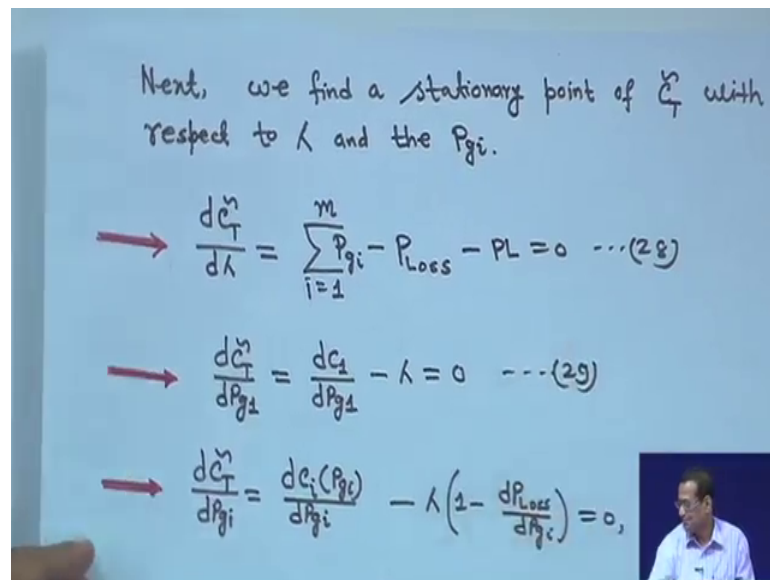 Next, we find a stationary point of C̃_T with
respect to λ and the P_gi.
dC̃_T/dλ = ∑_{i=1}^{m} P_gi − P_Loss − PL = 0 ---(28)
dC̃_T/dP_g1 = dC_1/dP_g1 − λ = 0 ----(29)
dC̃_T/dP_gi = dC_i(P_gi)/dP_gi − λ(1 − dP_Loss/dP_gi) = 0,